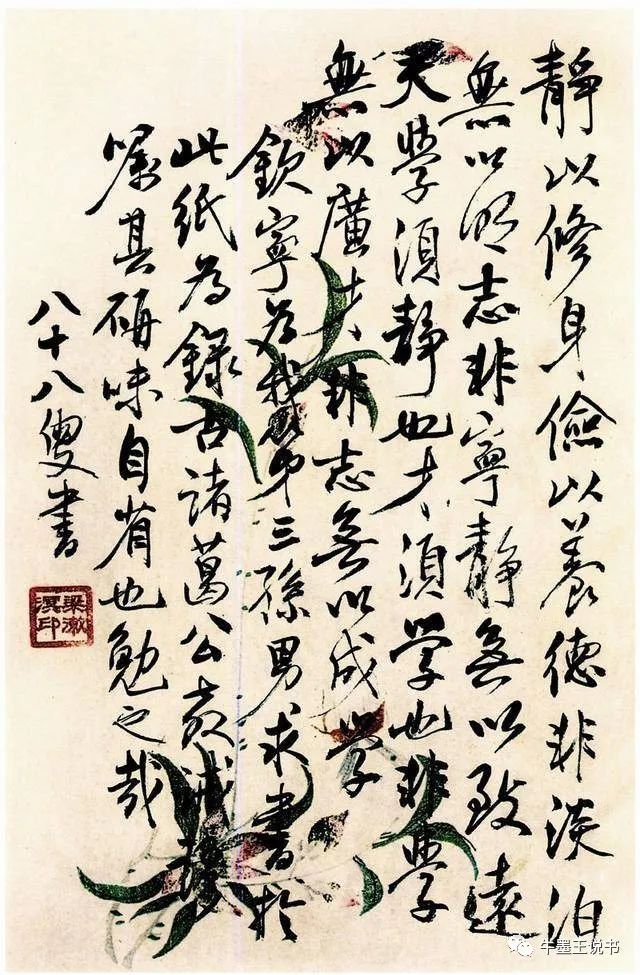 靜以修身儉以養德非淡泊
無以明志非寧靜無以致遠
夫學須靜也才須学也非學
無以廣才非志無以成學
欽寧為我第三孫男求書於
此紙為錄古諸葛公教誡
囑其研味自省也勉之哉
八十八叟書
梁漱溟印
牛墨王说书